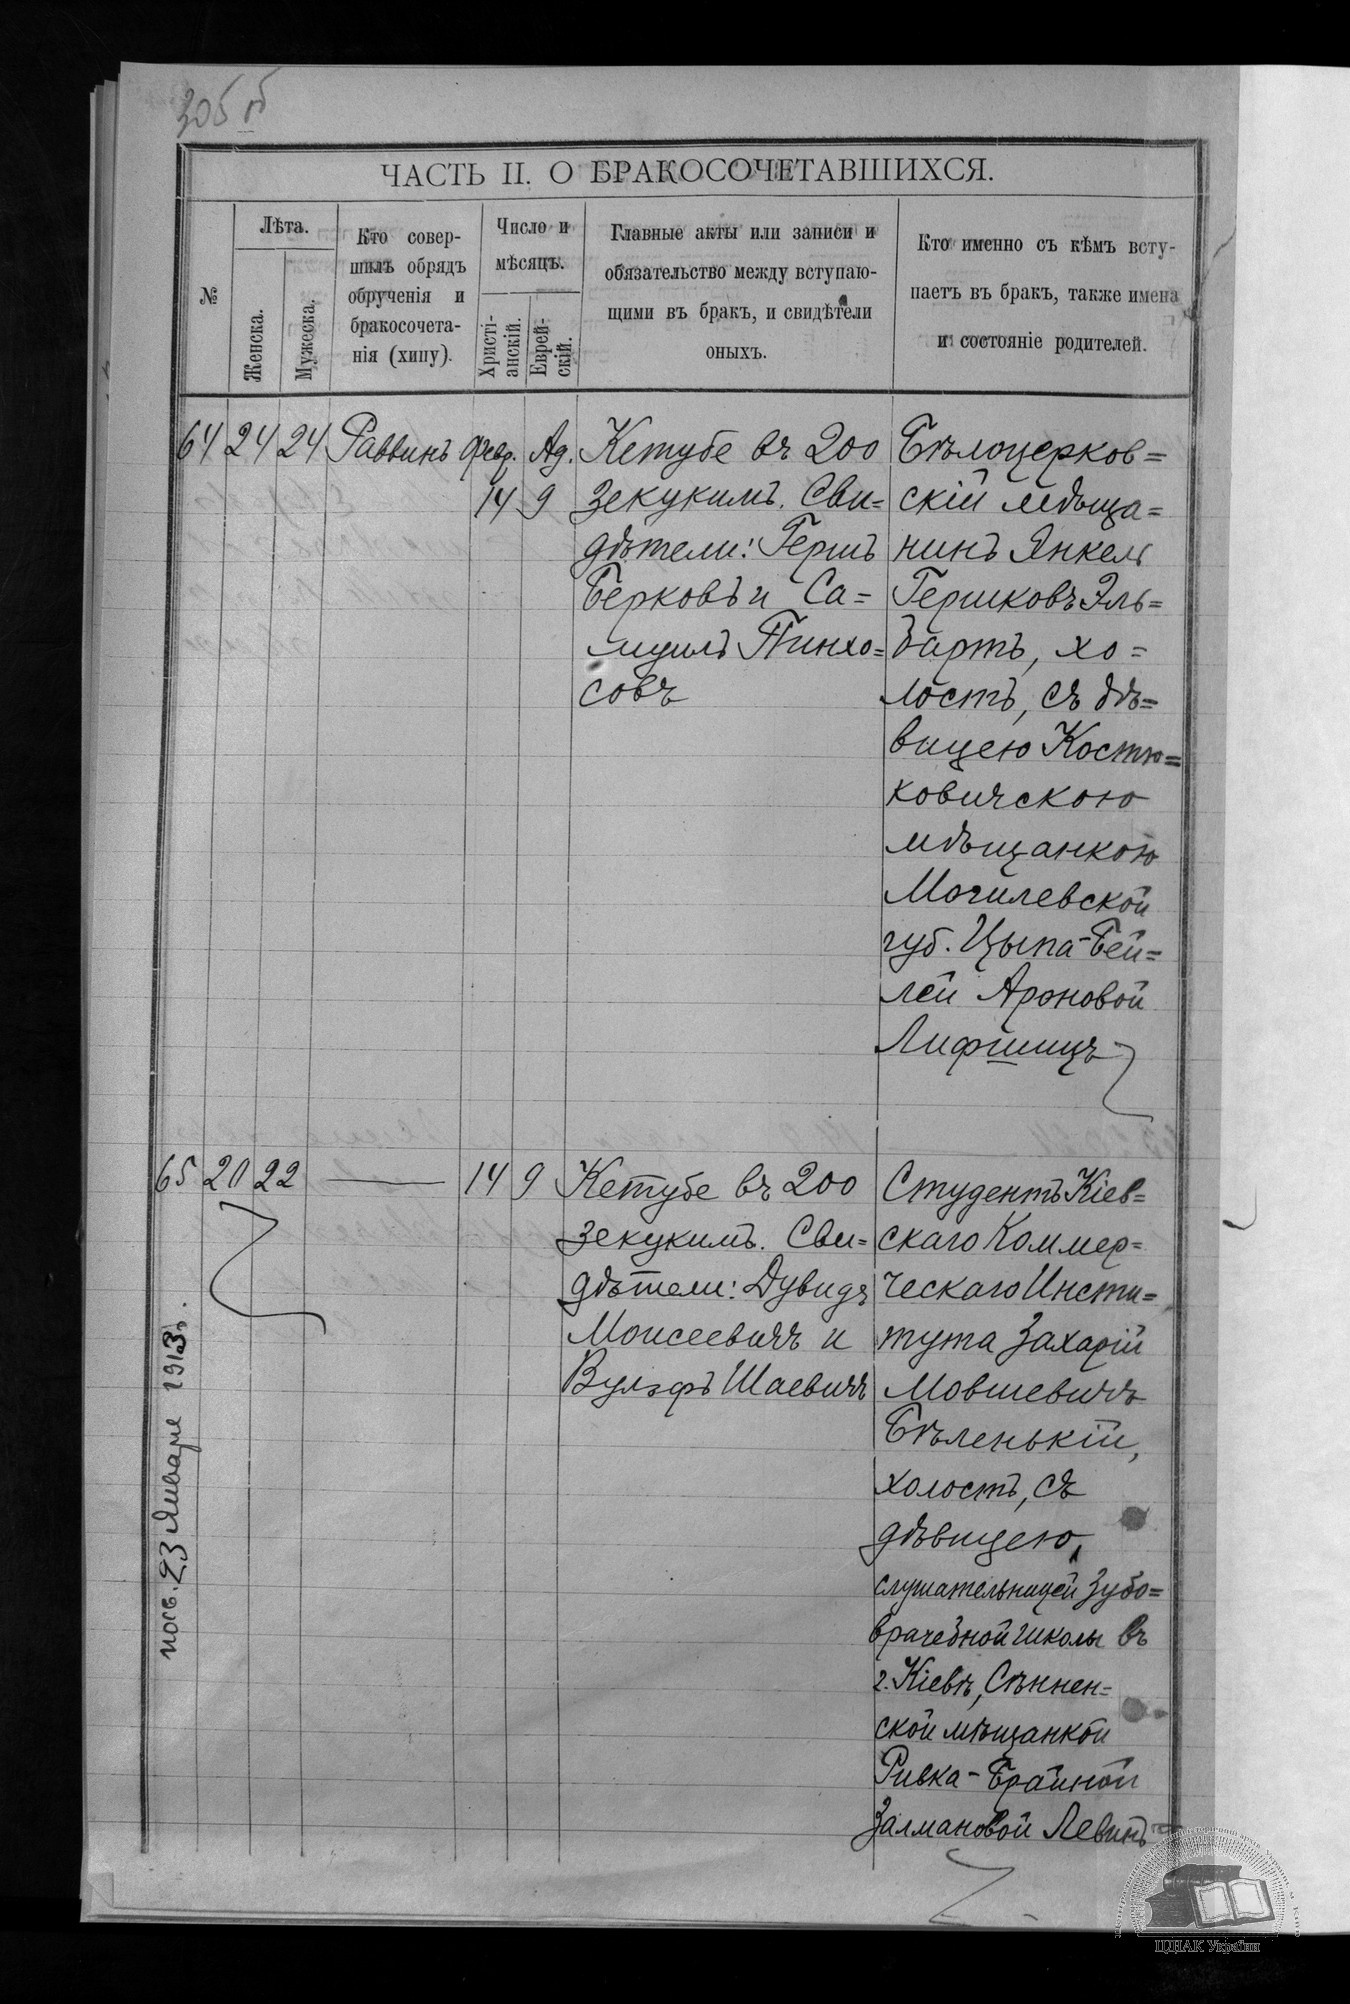 305 об
ЧАСТЬ II. О БРАКОСОЧЕТАВШИХСЯ.
№
Лѣта.
Женска.
Мужеска.
Кто совер-
шилъ обрядъ
обрученія и
бракосочета-
нія (хипу).
Число и
мѣсяцъ.
Христі-
анскій.
Еврей-
скій.
Главные акты или записи и
обязательство между вступаю-
щими въ бракъ, и свидѣтели
оныхъ.
Кто именно съ кѣмъ всту-
паетъ въ бракъ, также имена
и состояніе родителей.
64 24 24 Раввинъ Февр. Ад.
14 9
Кетубе въ 200
зекукимъ. Сви=
дѣтели: Гершъ
Берковъ и Са=
муилъ Пинхо=
совъ
Бѣлоцерков=
скій мѣща=
нинъ Янкель
Гершковъ Эль=
бартъ, хо=
лостъ, съ дѣ=
вицею Костю=
ковичскою
мѣщанкою
Могилевской
губ. Цыпа-Бей=
лей Ароновой
Лифшицъ
65 20 22 — 14 9
Кетубе въ 200
зекукимъ. Сви=
дѣтели: Дувидъ
Моисеевичъ и
Вульфъ Шаевичъ
Студентъ Кіев=
скаго Коммер=
ческаго Инсти=
тута Захарій
Мовшевичъ
Бѣленькій,
холостъ, съ
дѣвицею,
слушательницей Зубо=
врачебной школы въ
г. Кіевѣ, Сѣннен=
ской мѣщанкой
Ривка-Брайной
Залмановой Левинъ
23 Января 1913.
ЦДІАК України